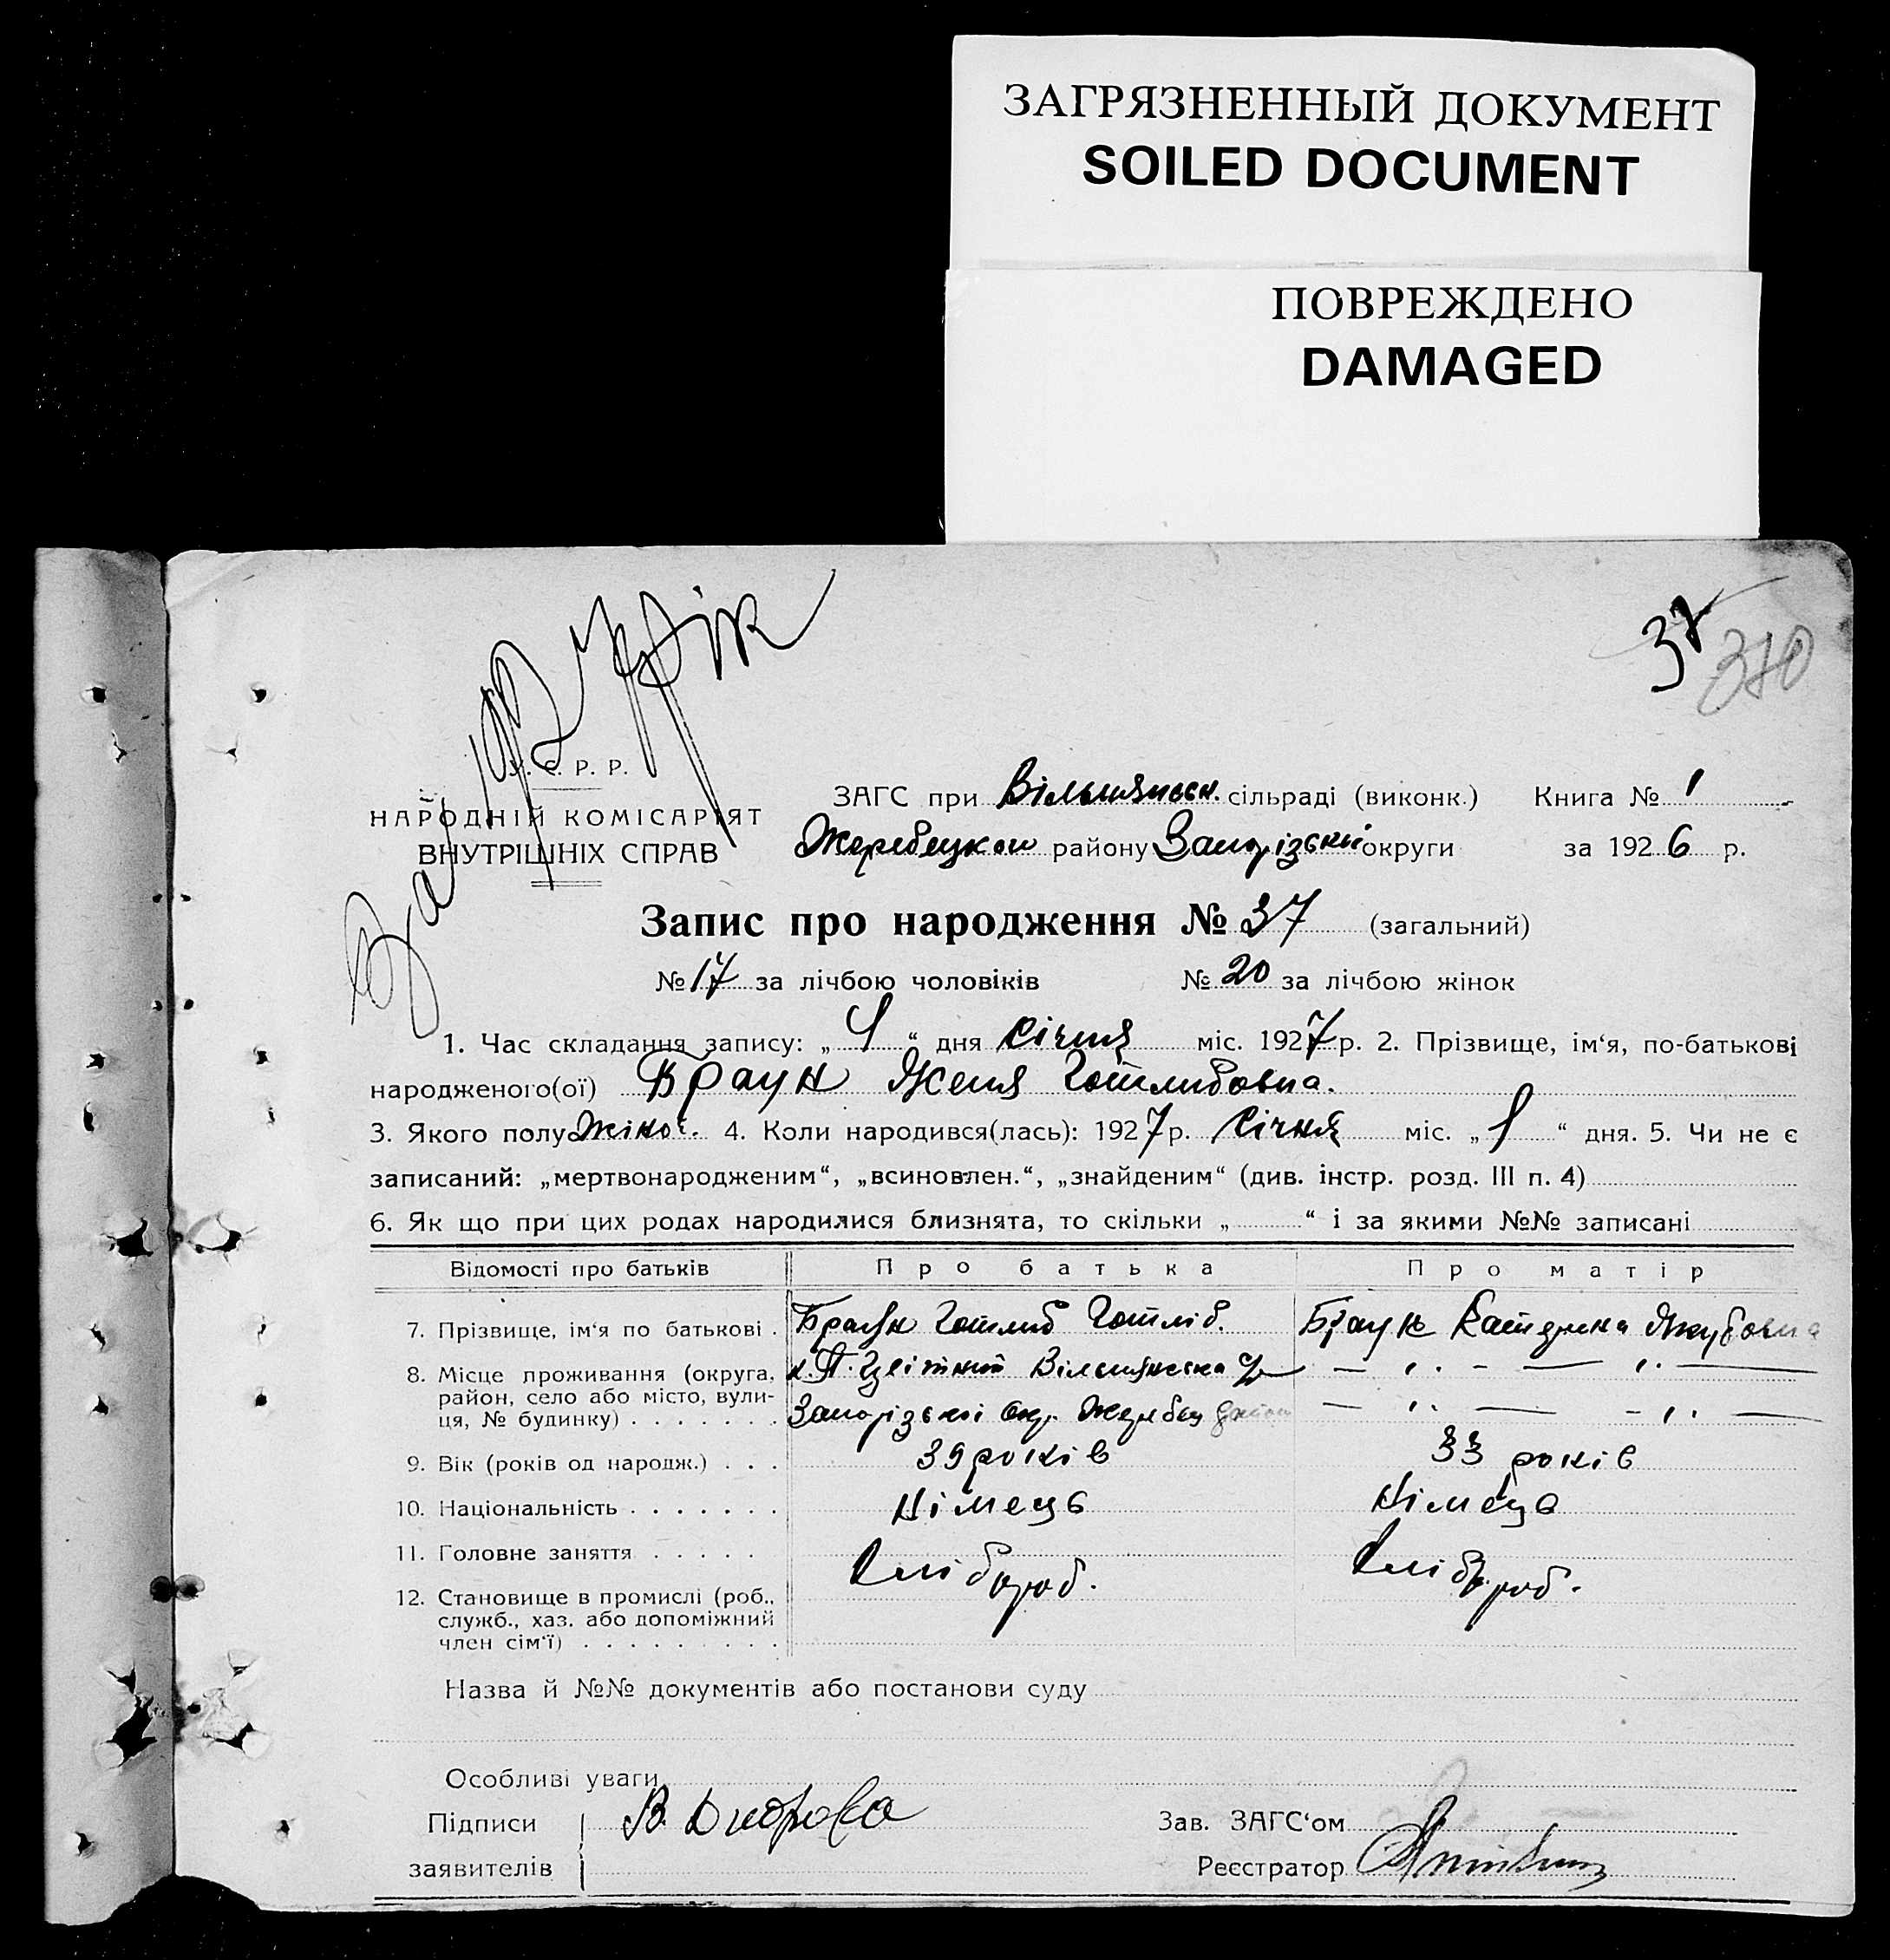 ЗАГРЯЗНЕННЫЙ ДОКУМЕНТ
SOILED DOCUMENT
ПОВРЕЖДЕНО
DAMAGED
За 1927 рік
37
370
У. С. Р. Р.
НАРОДНІЙ КОМІСАРІЯТ
ВНУТРІШНІХ СПРАВ
ЗАГС при Вільнянськ. сільраді (виконк.) Книга № 1
Жеребецком району Запорізькі округи за 1926 р.
Запис про народження № 37 (загальний)
№ 17 за лічбою чоловіків № 20 за лічбою жінок
1. Час складання запису: „ “ дня Січня міс. 1927 р. 2. Прізвище, ім‘я, по-батькові
народженого(ої) Браун Женя Готлибовна.
3. Якого полу жіноі. 4. Коли народився(лась): 1927 р. Січня міс. „ “ дня. 5. Чи не є
записаний: „мертвонародженим“, „всиновлен.“, „знайденим“ (див. інстр. розд. III п. 4)
6. Як що при цих родах народилися близнята, то скільки „ “ і за якими №№ записані
Відомості про батьків Про батька Про матір
7. Прізвище, ім‘я по батькові . Браун Готлиб Готліб. Браун Катерина Якубовна
8. Місце проживання (округа, район, село або місто, вулиця, № будинку) . . . . . . . Вільнянська
Запорізькоі окр. Жеребец
9. Вік (років од народж.) . . . 39 років 33 років
10. Національність . . . . . . . Німець Німець
11. Головне заняття . . . . . Хлібороб. Хлібороб.
12. Становище в промислі (роб., служб., хаз. або допоміжний член сім‘ї) . . . . . . . . .
Назва й №№ документів або постанови суду
Особливі уваги
Підписи Зав. ЗАГС‘ом
заявителів Реєстратор